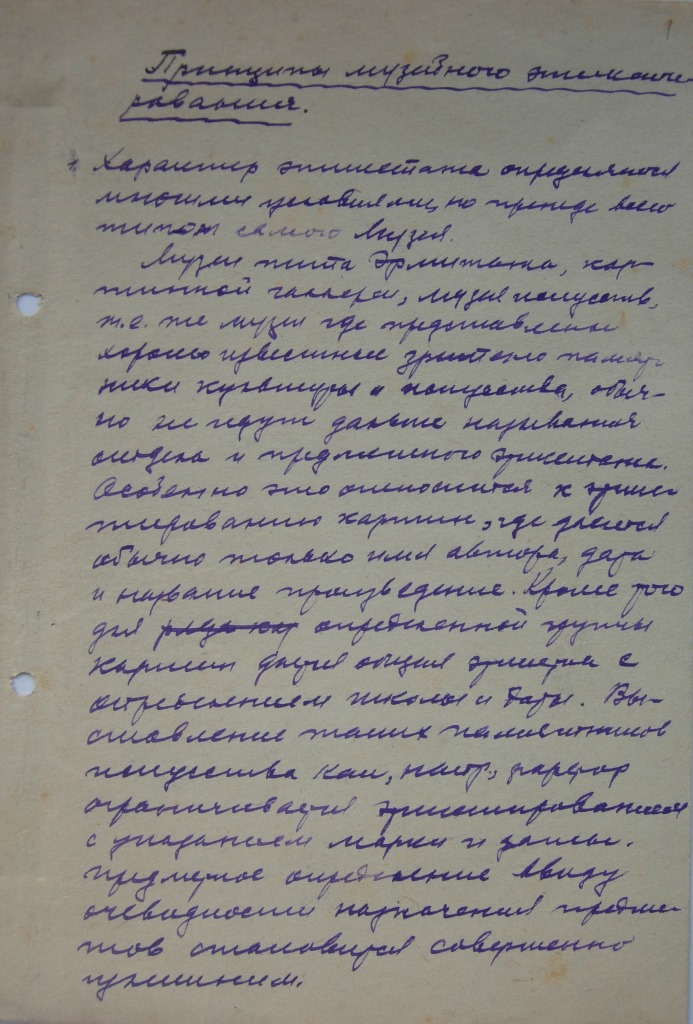 1
Принципы музейного этикети-
рования.
1. Характер этикетажа определяется
многими условиями, но прежде всего
типом самого Музея.
Музеи типа Эрмитажа, кар-
тинной галлереи, музея искусств,
т.е. те музеи где представлены
хорошо известные зрителю памят-
ники культуры и искусства, обыч-
но не идут дальше называния
отдела и предметного этикетажа.
Особенно это относится к этике-
тированию картин, где дается
обычно только имя автора, дата
и название произведение. Кроме того
для определенной группы
картин дается общая этикетка с
определением школы и даты. Вы-
ставление таких памятников
искусства как, напр., фарфор
ограничивается этикетированием
с указанием марки и даты.
Предметное определение ввиду
очевидности назначения предме-
тов становится совершенно
излишним.